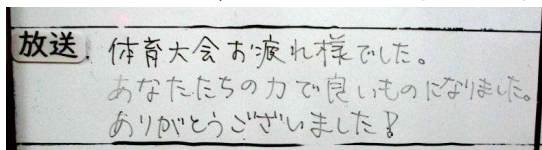 放送. 体育大会お疲れ様でした。
あなたたちの力で良いものになりました。
ありがとうございました!